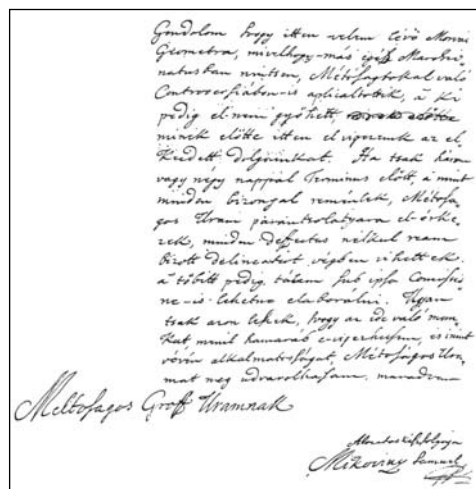 Gondolom hogy itten velem lévő Morvai
Geometra, mivelhogy más igéss Marchio-
natusban nintsen, Métóságtokal való
Controversiában is aplicáltotik, á ki
pedig el nem gyöhett,
minek előtte itten el vigezenek az el
kezdett dolgainkat. Ha tsak három
vagy négy nappal Terminus előtt, á mint
minden bizonyal reménlek, Métósá-
gos Uram parantsolatyara el érke-
zek, minden defectus nélkul ream
bizott delineatiót végben vihettek
á többit pedig talam sub ipsa Comissio
ne is lehetne elaborálni. Ugyan
tsak azon leszek, hogy az ide való mun
kat, minil hamaráb vigezhessem, és imint
vévén alkalmatoságat, Métóságos Ura
mat meg udvarolhassam, maradván
Méltoságos Groff Uramnak
Mikoviny Samuel